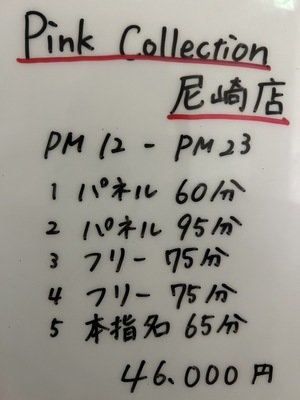 Pink Collection
尼崎店
PM 12 - PM 23
1 パネル 60分
2 パネル 95分
3 フリー 75分
4 フリー 75分
5 本指名 65分
46.000円